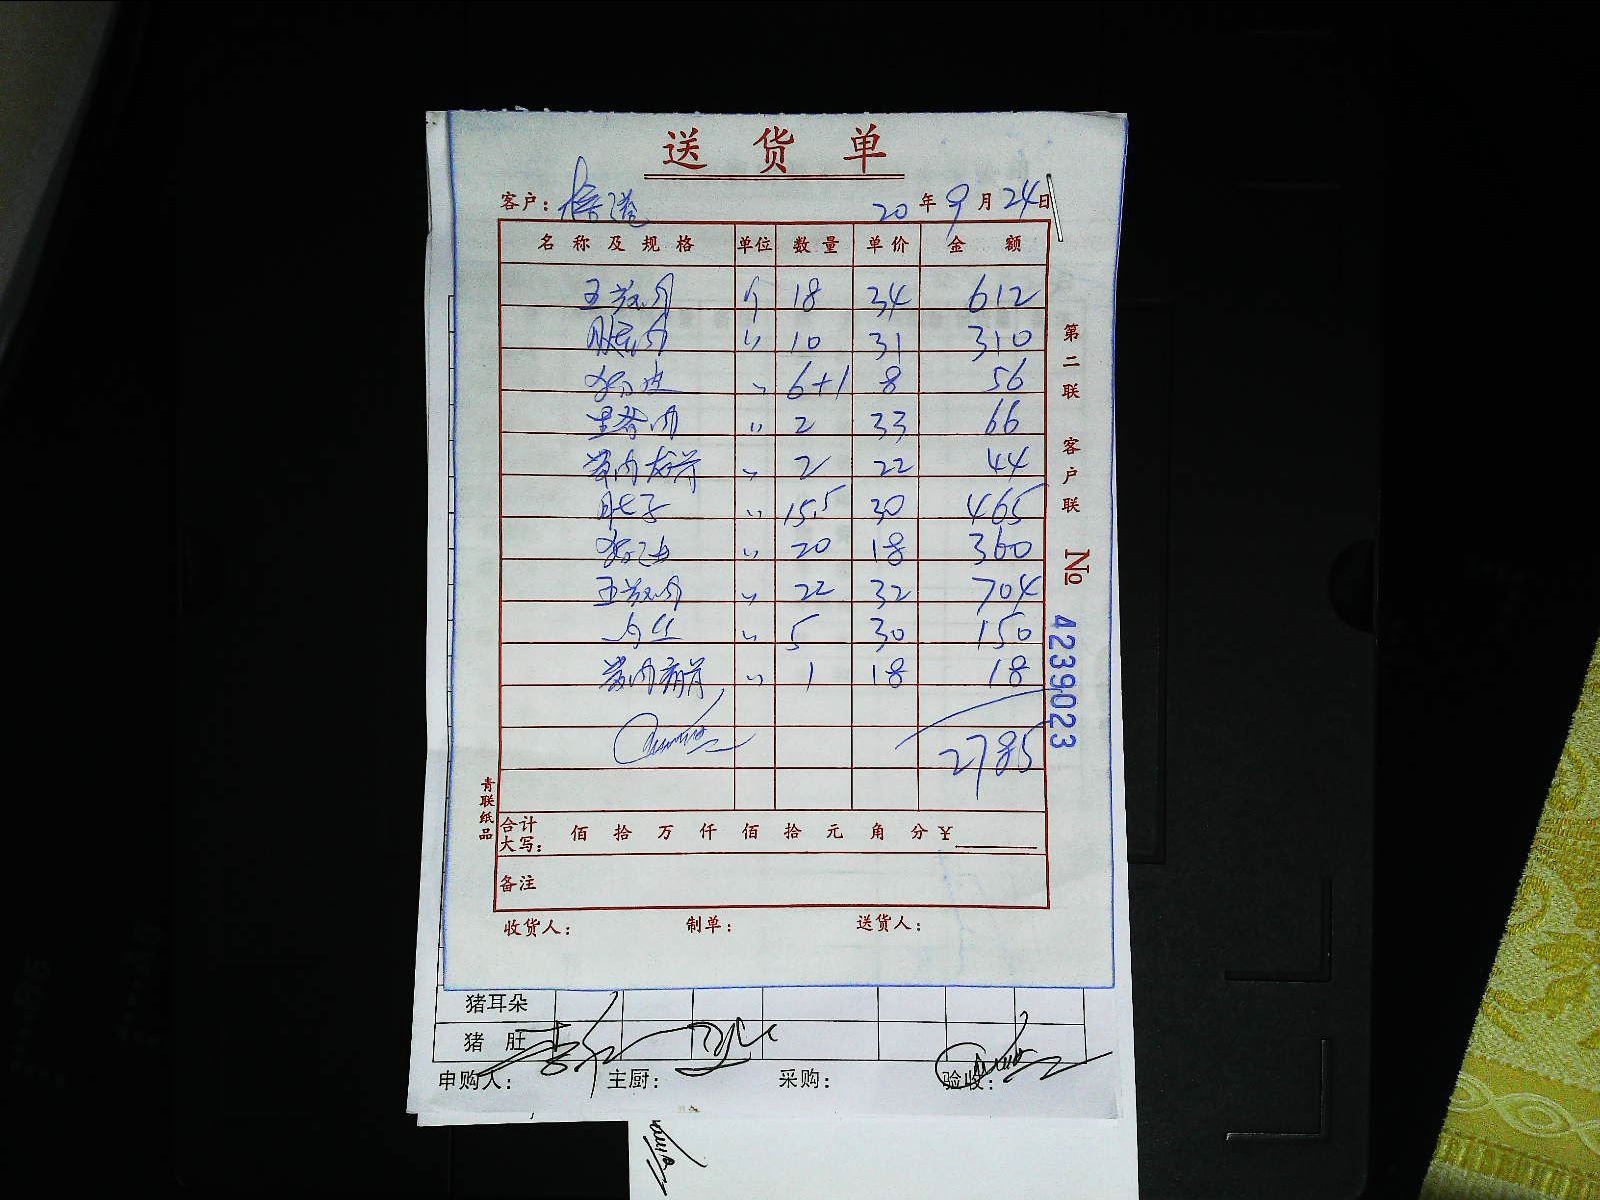 送货单
客户: 20年9月24日
名称及规格 单位 数量 单价 金额
五花肉 斤 18 34 612
腿肉 〃 10 31 310
猪皮 〃 6+1 8 56
里脊肉 〃 2 33 66
带肉龙骨 〃 2 22 44
肚子 〃 15.5 30 465
〃 20 18 360
五花肉 〃 22 32 704
肉丝 〃 5 30 150
带肉背 〃 1 18 18
2785
合计大写: 佰 拾 万 仟 佰 拾 元 角 分 ¥
备注
收货人: 制单: 送货人:
第二联 客户联
№ 4239023
青联纸品
猪耳朵
猪 旺
申购人: 主厨: 采购: 验收: